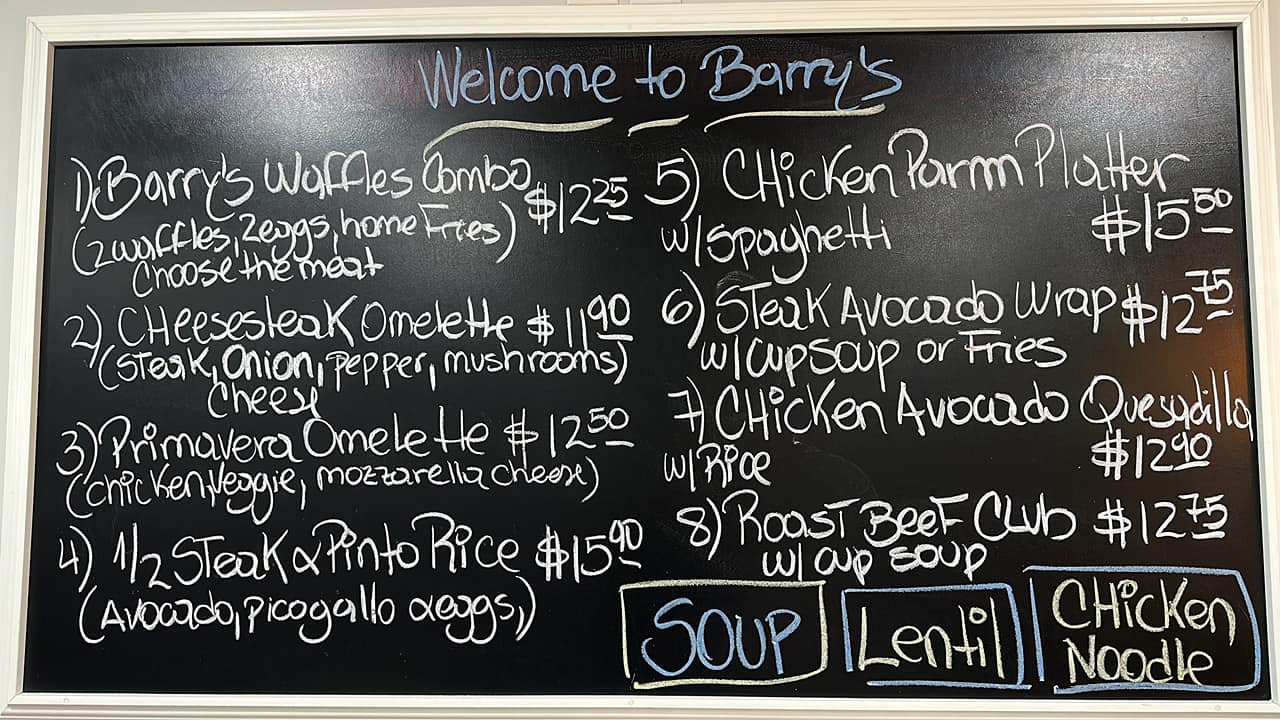 Welcome to Barry's
1) Barry's Waffles Combo $12.25
(2 waffles, 2 eggs, home Fries)
Choose the meat
2) CHeesesteak Omelette $11.90
(Steak, Onion, pepper, mushrooms)
Cheese
3) Primavera Omelette $12.50
(chicken, Veggie, mozzarella cheese)
4) 1/2 Steak & Pinto Rice $15.90
(Avocado, picogallo & eggs,)
5) CHicken Parm Platter
w/spaghetti $15.50
6) Steak Avocado Wrap $12.75
w/cup soup or Fries
7) CHicken Avocado Quesadilla
w/Rice $12.90
8) Roast Beef Club $12.75
w/ cup soup
SOUP
Lentil
CHicken
Noodle